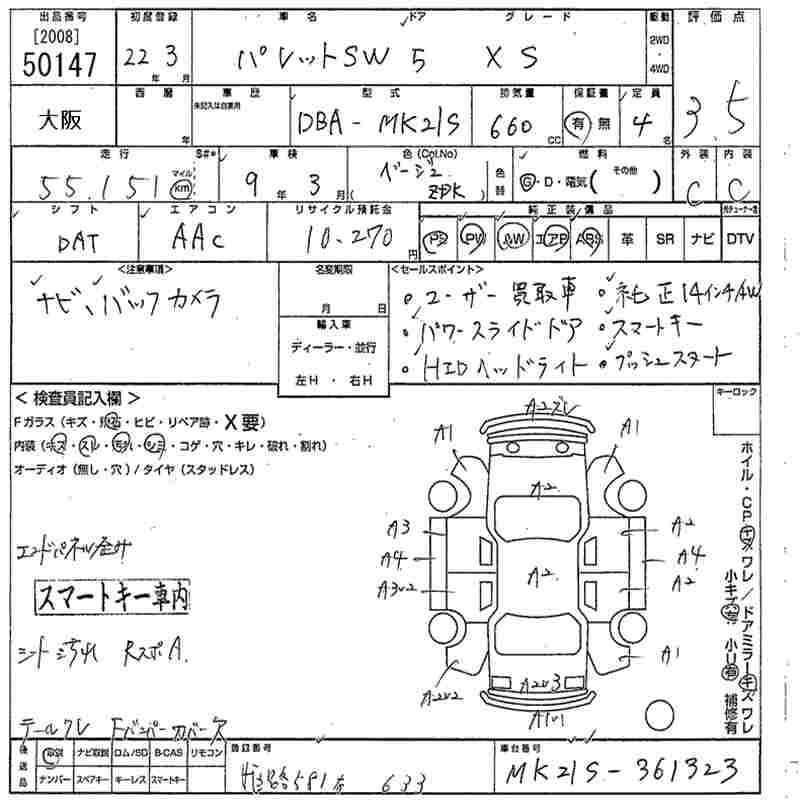 出品番号 初度登録 車名 ドア グレード 駆動 評価点
[2008]
50147 22年 3月 パレットSW 5 XS 2WD・4WD 3.5
大阪 西暦 年 車歴 未記入は自家用 型式 DBA-MK21S 排気量 660cc 保証書 有 無 定員 4名
走行 S#* 車検 色(Col,No) 燃料 外装 内装
55,151 マイル km 9年 3月 ベージュ ZPK 色替 G・D・電気( その他 ) C C
シフト エアコン リサイクル預託金 純正装備品
DAT AAC 10,270円 PS PW AW エアB ABS 革 SR ナビ DTV
<注意事項> 名変期限 <セールスポイント>
ナビ、バックカメラ 月 日
輸入車
ディーラー・並行
左H・右H
・ユーザー買取車 ・純正14インチAW
・パワースライドドア ・スマートキー
・HIDヘッドライト ・プッシュスタート
<検査員記入欄> キーロック
Fガラス(キズ・飛石・ヒビ・リペア跡・X要)
内装(キズ・スレ・汚れ・シミ・コゲ・穴・キレ・破れ・割れ)
オーディオ(無し・穴)/タイヤ(スタッドレス)
A2ズレ
A1 A1
A2
A3 A2
A4 A2 A4
A3 A2
A1
A2
A1
スマートキー車内
シート汚れ RスポA.
テールワレ Fバンパーカバー欠
ホイル・CPキズワレ/ドアミラーキズワレ
小キズ有 小U有 補修有
後送品 取説 ナビ取説 ロム/SD B-CAS リモコン
ナンバー スペアキー キーレス スマートキー
登録番号 581 633
車台番号 MK21S-361323